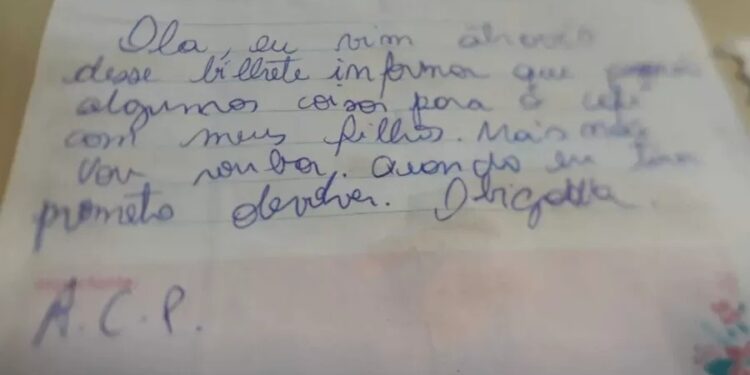 Ola, eu vim através
desse bilhete informar que peguei
algumas coisas para
com meus filhos. Mais não
vou roubar. Quando eu
prometo devolver. Obigada
A.C.P.